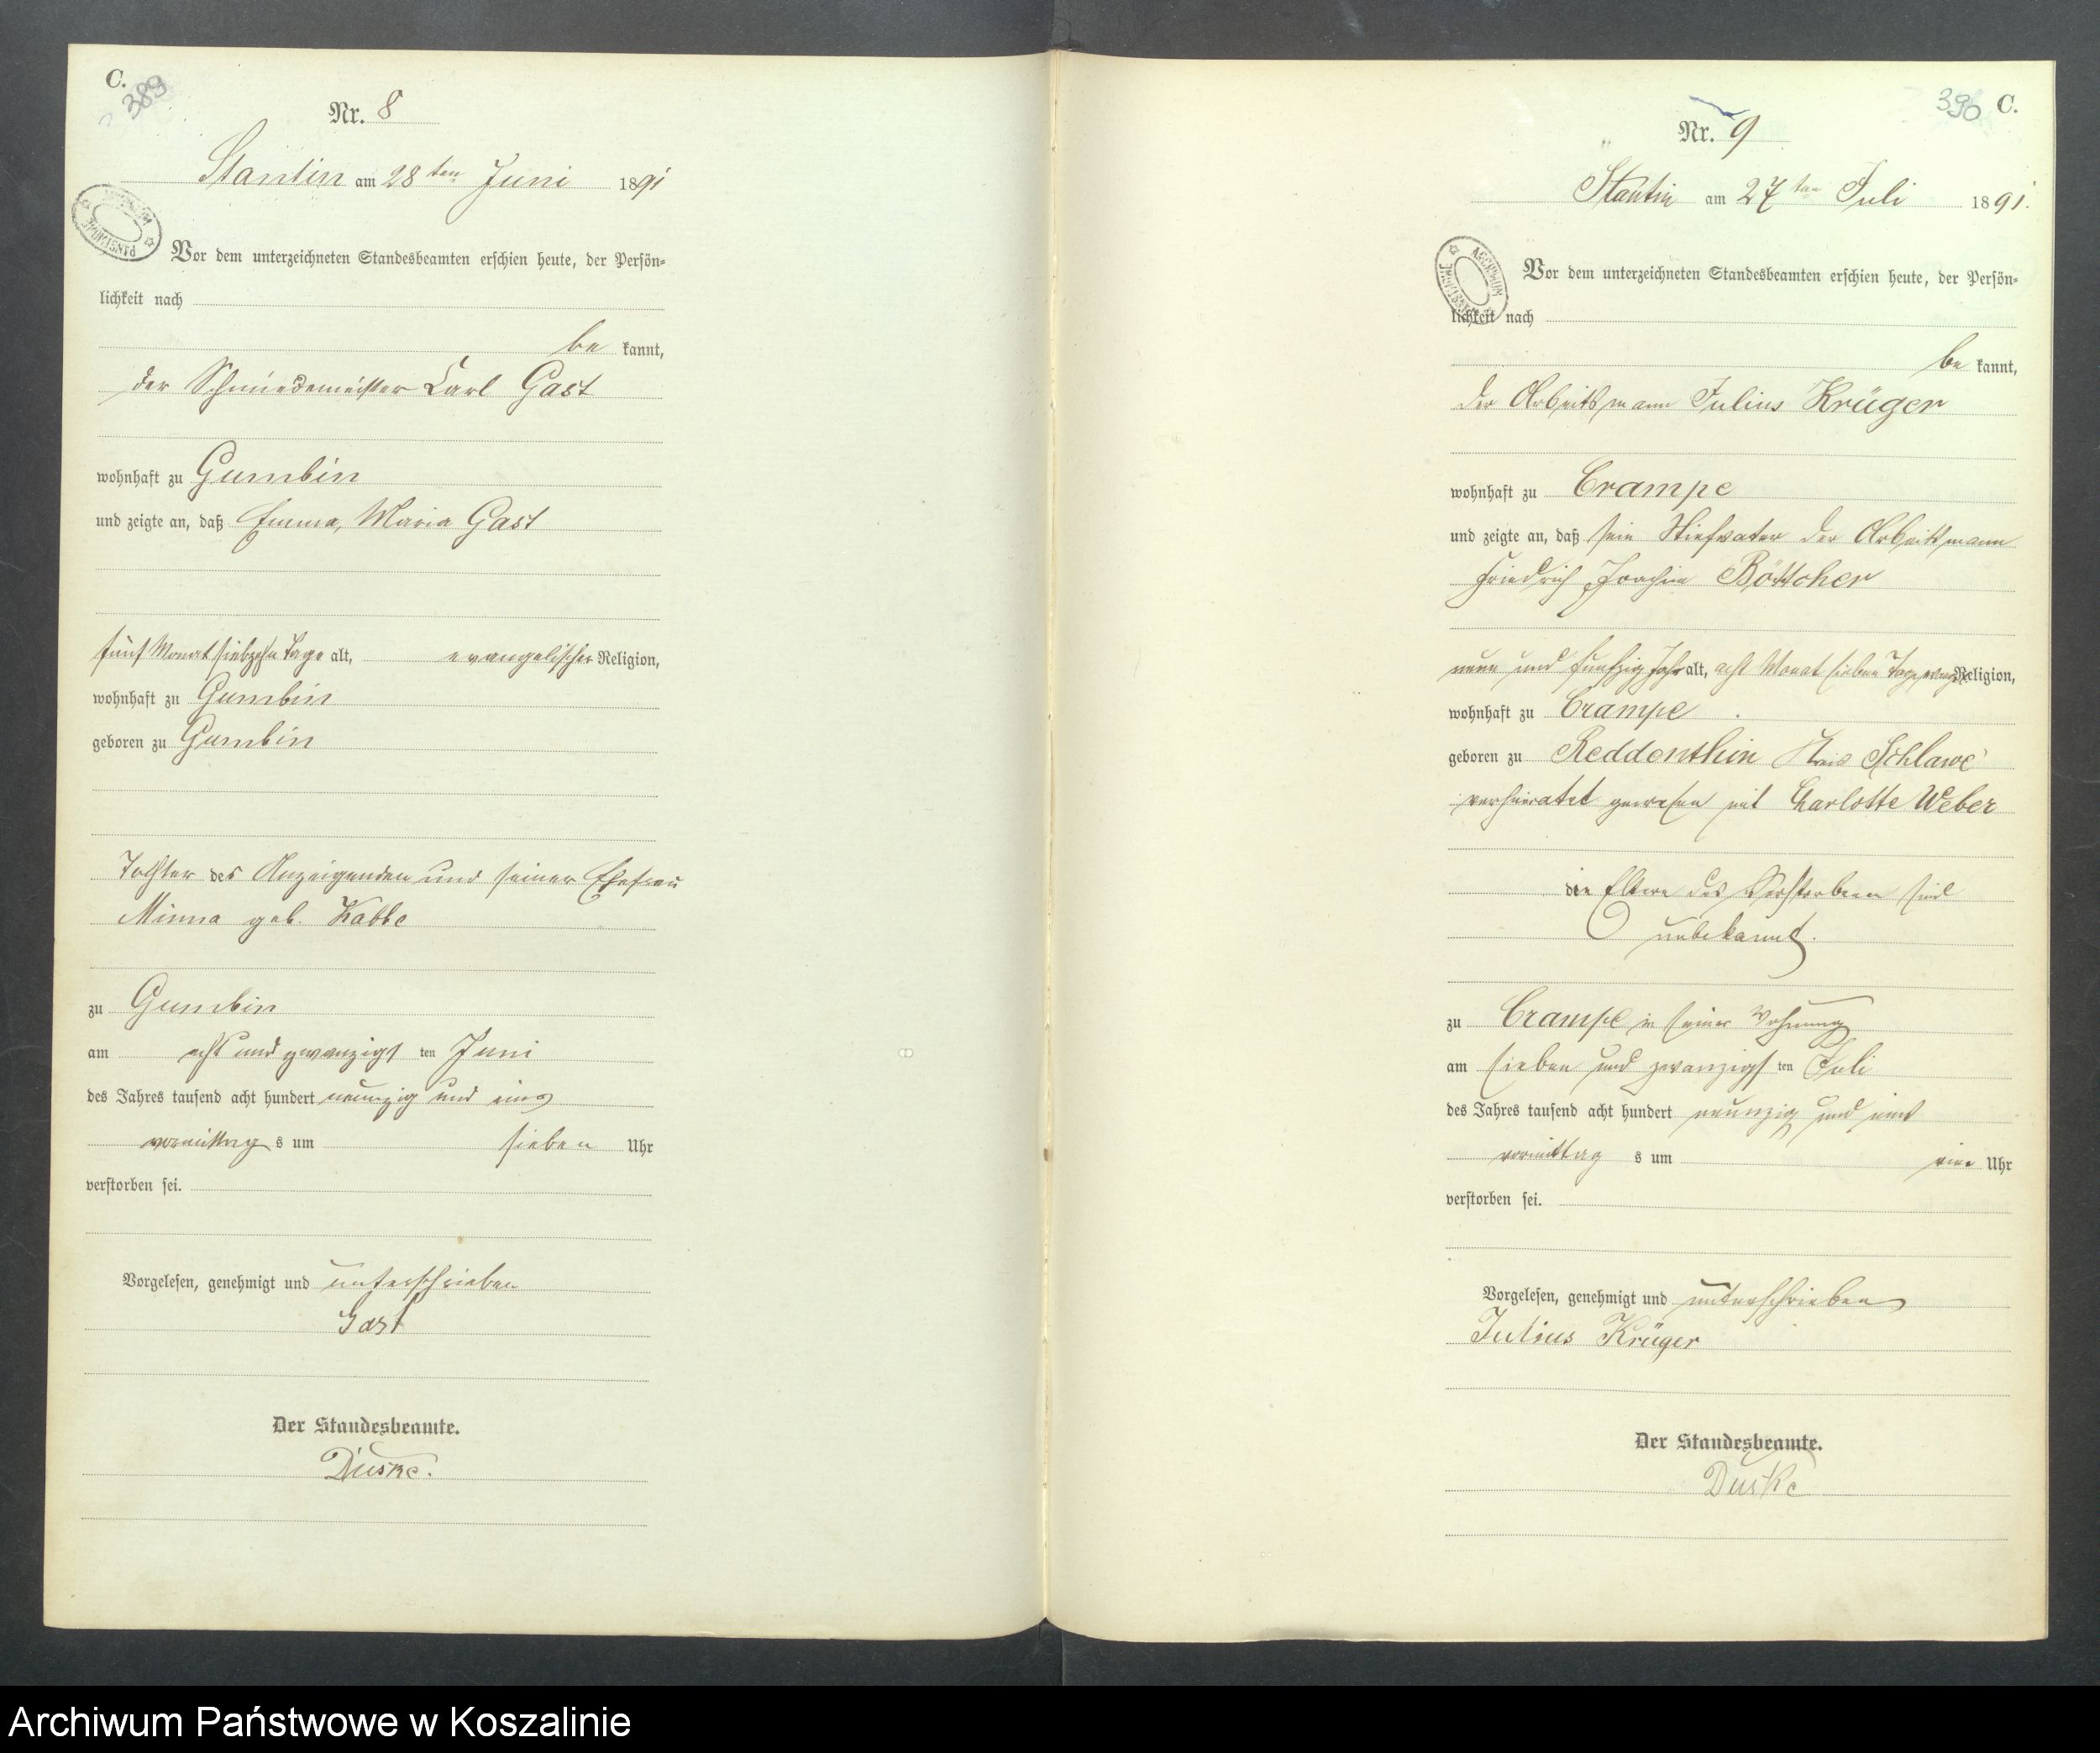 C.
389
Nr. 8
Stantin am 28ten Juni 1891
Vor dem unterzeichneten Standesbeamten erschien heute, der Persön-
lichkeit nach
be kannt,
der Schmiedemeister Carl Gast
wohnhaft zu Gumbin
und zeigte an, daß Emma, Maria Gast
fünf Monat siebzehn Tage alt, evangelischer Religion,
wohnhaft zu Gumbin
geboren zu Gumbin
Tochter des Anzeigenden und seiner Ehefrau
Minna geb. Kabbe
zu Gumbin
am acht und zwanzigs ten Juni
des Jahres tausend acht hundert neunzig und eins
vormittag s um sieben Uhr
verstorben sei.
Vorgelesen, genehmigt und unterschrieben
Gast
Der Standesbeamte.
Duske.
390 C.
Nr. 9
Stantin am 27ten Juli 1891.
ARCHIWUM PAŃSTWOWE
Vor dem unterzeichneten Standesbeamten erschien heute, der Persön-
lichkeit nach
be kannt,
der Arbeitsmann Julius Krüger
wohnhaft zu Crampe
und zeigte an, daß sein Stiefvater der Arbeitsmann
Friedrich Joachim Böttcher
neun und funfzig Jahr alt, acht Monat sieben Tage, evang. Religion,
wohnhaft zu Crampe
geboren zu Reddenthin Kreis Schlawe
verheiratet gewesen mit Charlotte Weber
die Eltern des Verstorbenen sind
unbekannt.
zu Crampe in seiner Wohnung
am sieben und zwanzigs ten Juli
des Jahres tausend acht hundert neunzig und eins
vormittag s um eine Uhr
verstorben sei.
Vorgelesen, genehmigt und unterschrieben
Julius Krüger
Der Standesbeamte.
Duske
Archiwum Państwowe w Koszalinie